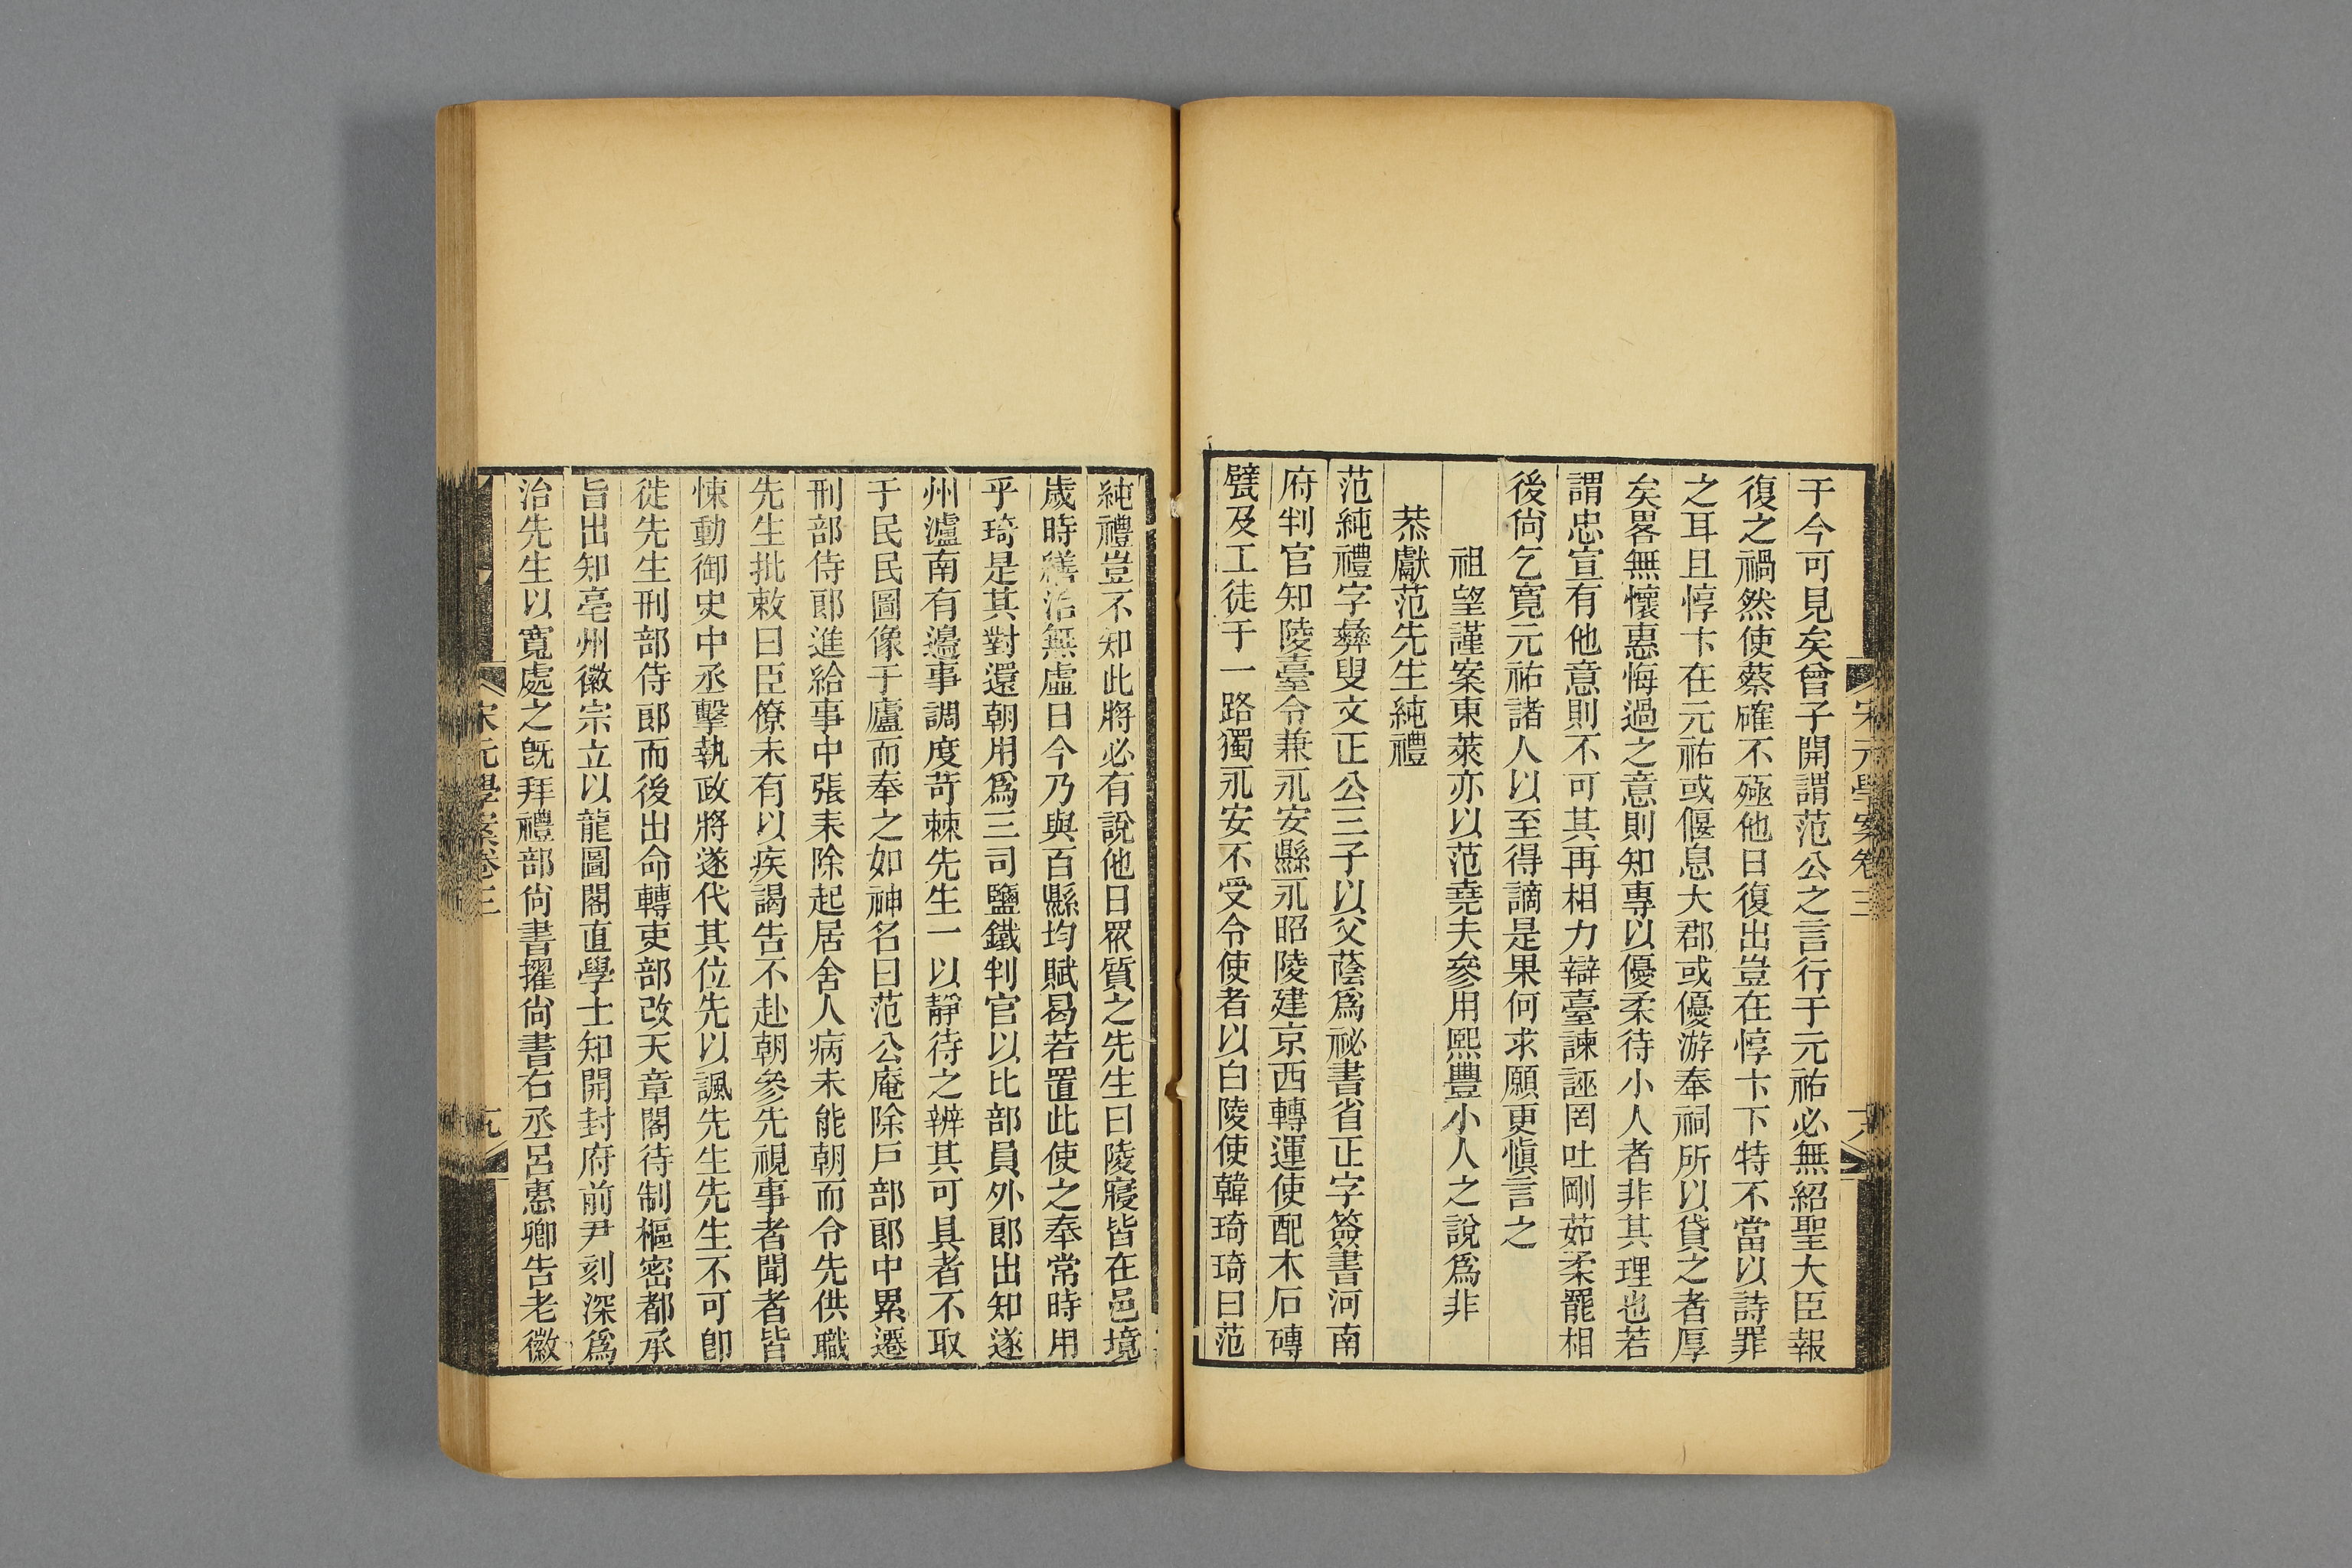 宋元學案卷三
十八
于今可見矣曾子開謂范公之言行于元祐必無紹聖大臣報
復之禍然使蔡確不殛他日復出豈在惇卞下特不當以詩罪
之耳且惇卞在元祐或偃息大郡或優游奉祠所以貸之者厚
矣畧無懷惠悔過之意則知專以優柔待小人者非其理也若
謂忠宣有他意則不可其再相力辯臺諫誣罔吐剛茹柔罷相
後尙乞寬元祐諸人以至得謫是果何求願更愼言之
祖望謹案東萊亦以范堯夫參用熙豐小人之說爲非
恭獻范先生純禮
范純禮字彝叟文正公三子以父蔭爲祕書省正字簽書河南
府判官知陵臺令兼永安縣永昭陵建京西轉運使配木石磚
甓及工徒于一路獨永安不受令使者以白陵使韓琦琦曰范
純禮豈不知此將必有說他日眾質之先生曰陵寢皆在邑境
歲時繕治無虛日今乃與百縣均賦曷若置此使之奉常時用
乎琦是其對還朝用爲三司鹽鐵判官以比部員外郎出知遂
州瀘南有邊事調度苛棘先生一以靜待之辨其可具者不取
于民民圖像于廬而奉之如神名曰范公庵除戶部郎中累遷
刑部侍郎進給事中張耒除起居舍人病未能朝而令先供職
先生批敕曰臣僚未有以疾謁告不赴朝參先視事者聞者皆
悚動御史中丞擊執政將遂代其位先以諷先生先生不可卽
徙先生刑部侍郎而後出命轉吏部改天章閣待制樞密都承
旨出知亳州徽宗立以龍圖閣直學士知開封府前尹刻深爲
治先生以寬處之旣拜禮部尙書擢尙書右丞呂惠卿告老徽
宋元學案卷三